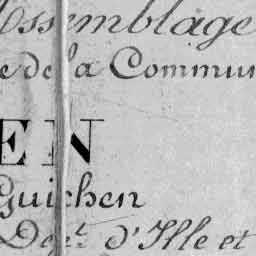 Assemblage
e de la Commun
EN
Guichen
Dept. d'Ille et